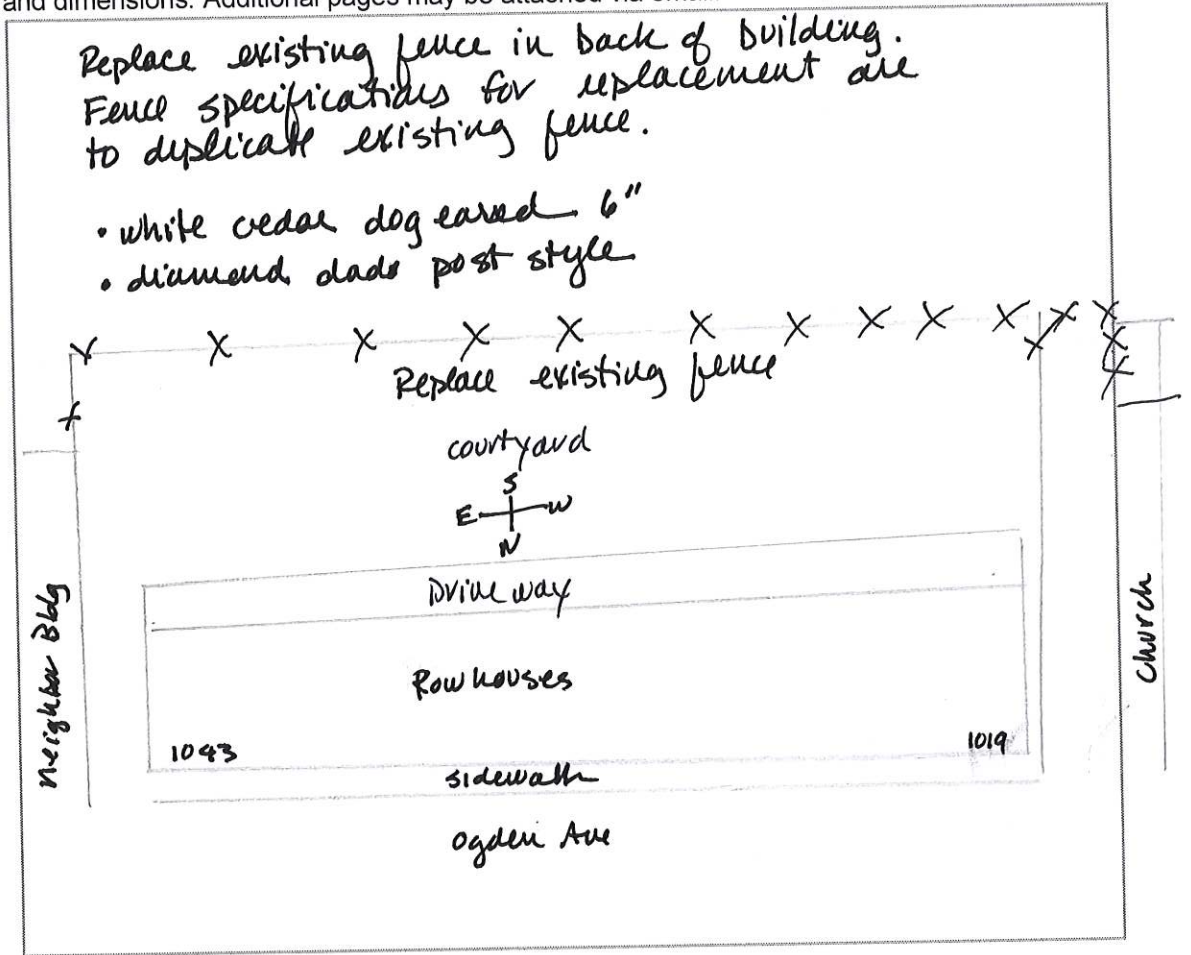 and dimensions. Additional pages may be attached via
Replace existing fence in back of building.
Fence specifications for replacement are
to duplicate existing fence.
• white cedar dog eared 6"
• diamond dado post style
X X X X X X X X X X X X
X X
X X
Replace existing fence
courtyard
S
E W
N
Driveway
Neighbor Bldg
Rowhouses
Church
1043 1019
sidewalk
Ogden Ave